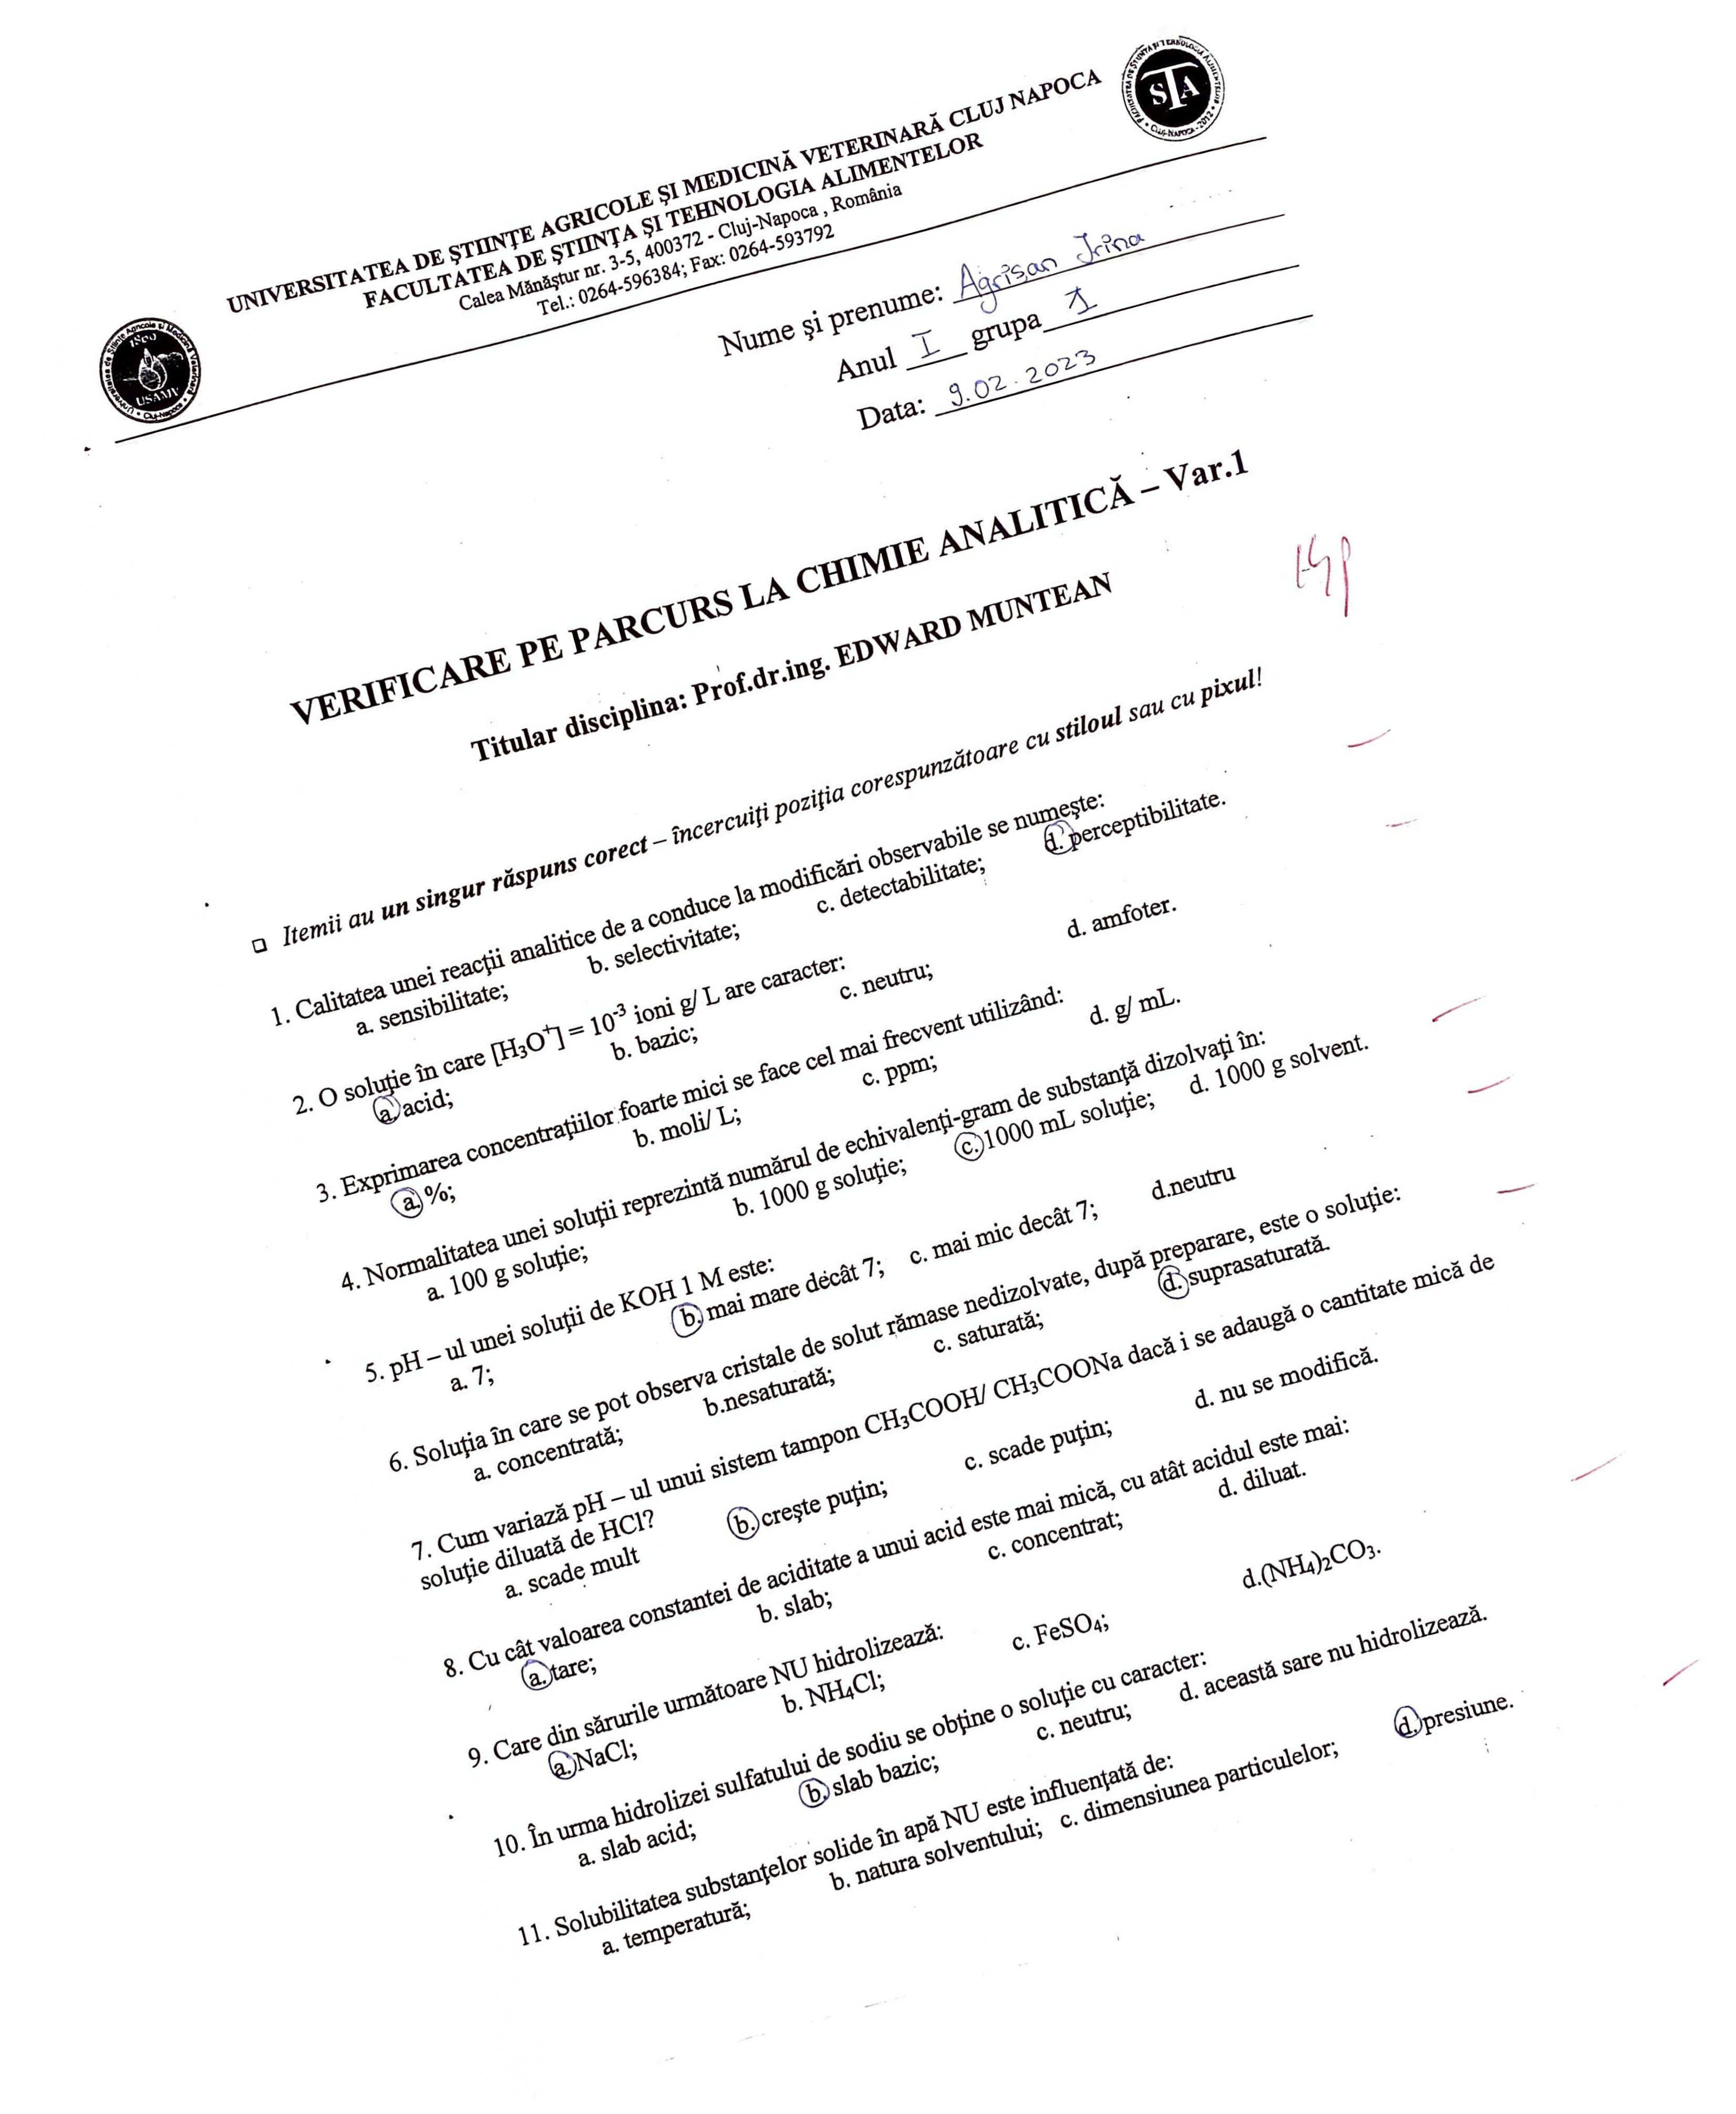 UNIVERSITATEA DE ŞTIINŢE AGRICOLE ŞI MEDICINĂ VETERINARĂ CLUJ NAPOCA
FACULTATEA DE ŞTIINŢA ŞI TEHNOLOGIA ALIMENTELOR
Calea Mănăştur nr. 3-5, 400372 - Cluj-Napoca , România
Tel.: 0264-596384; Fax: 0264-593792
STA
CLUJ-NAPOCA - 2012
USAMV
Nume şi prenume: Agrişan Irina
Anul I grupa 1
Data: 9.02.2023
VERIFICARE PE PARCURS LA CHIMIE ANALITICĂ – Var.1
Titular disciplina: Prof.dr.ing. EDWARD MUNTEAN
Itemii au un singur răspuns corect – încercuiţi poziţia corespunzătoare cu stiloul sau cu pixul!
1. Calitatea unei reacţii analitice de a conduce la modificări observabile se numeşte:
a. sensibilitate; b. selectivitate; c. detectabilitate; d. perceptibilitate.
2. O soluţie în care [H₃O⁺] = 10⁻³ ioni g/ L are caracter:
a. acid; b. bazic; c. neutru; d. amfoter.
3. Exprimarea concentraţiilor foarte mici se face cel mai frecvent utilizând:
a. %; b. moli/ L; c. ppm; d. g/ mL.
4. Normalitatea unei soluţii reprezintă numărul de echivalenţi-gram de substanţă dizolvaţi în:
a. 100 g soluţie; b. 1000 g soluţie; c. 1000 mL soluţie; d. 1000 g solvent.
5. pH – ul unei soluţii de KOH 1 M este:
a. 7; b. mai mare decât 7; c. mai mic decât 7; d.neutru
6. Soluţia în care se pot observa cristale de solut rămase nedizolvate, după preparare, este o soluţie:
a. concentrată; b.nesaturată; c. saturată; d. suprasaturată.
7. Cum variază pH – ul unui sistem tampon CH₃COOH/ CH₃COONa dacă i se adaugă o cantitate mică de
soluţie diluată de HCl?
a. scade mult b. creşte puţin; c. scade puţin; d. nu se modifică.
8. Cu cât valoarea constantei de aciditate a unui acid este mai mică, cu atât acidul este mai:
a. tare; b. slab; c. concentrat; d. diluat.
9. Care din sărurile următoare NU hidrolizează:
a. NaCl; b. NH₄Cl; c. FeSO₄; d.(NH₄)₂CO₃.
10. În urma hidrolizei sulfatului de sodiu se obţine o soluţie cu caracter:
a. slab acid; b. slab bazic; c. neutru; d. această sare nu hidrolizează.
11. Solubilitatea substanţelor solide în apă NU este influenţată de:
a. temperatură; b. natura solventului; c. dimensiunea particulelor; d. presiune.